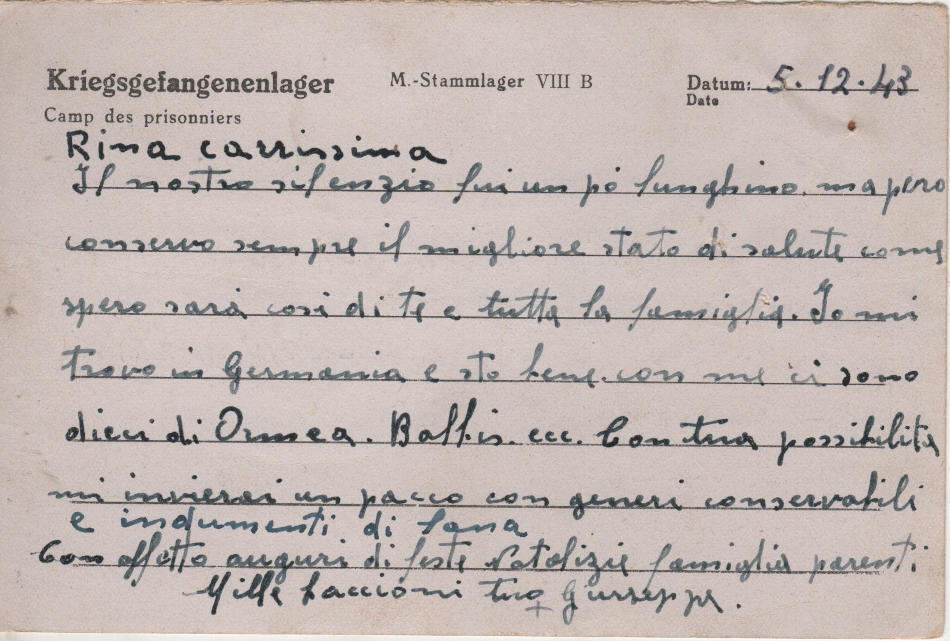 Kriegsgefangenenlager M.-Stammlager VIII B Datum: 5.12.43
Camp des prisonniers Date
Rina carrissima
Il nostro silenzio fui un pó lunghino. ma pero
conservo sempre il migliore stato di salute come
spero sará cosi di te e tutta la famiglia. Io mi
trovo in Germania e sto bene. con me ci sono
dieci di Ormea. Ballis. ecc. Con tua possibilita
mi invierai un pacco con generi conservabili
e indumenti di lana
Con affetto auguri di feste Natalizie famiglia parenti.
Mille baccioni tuo Giuseppe.